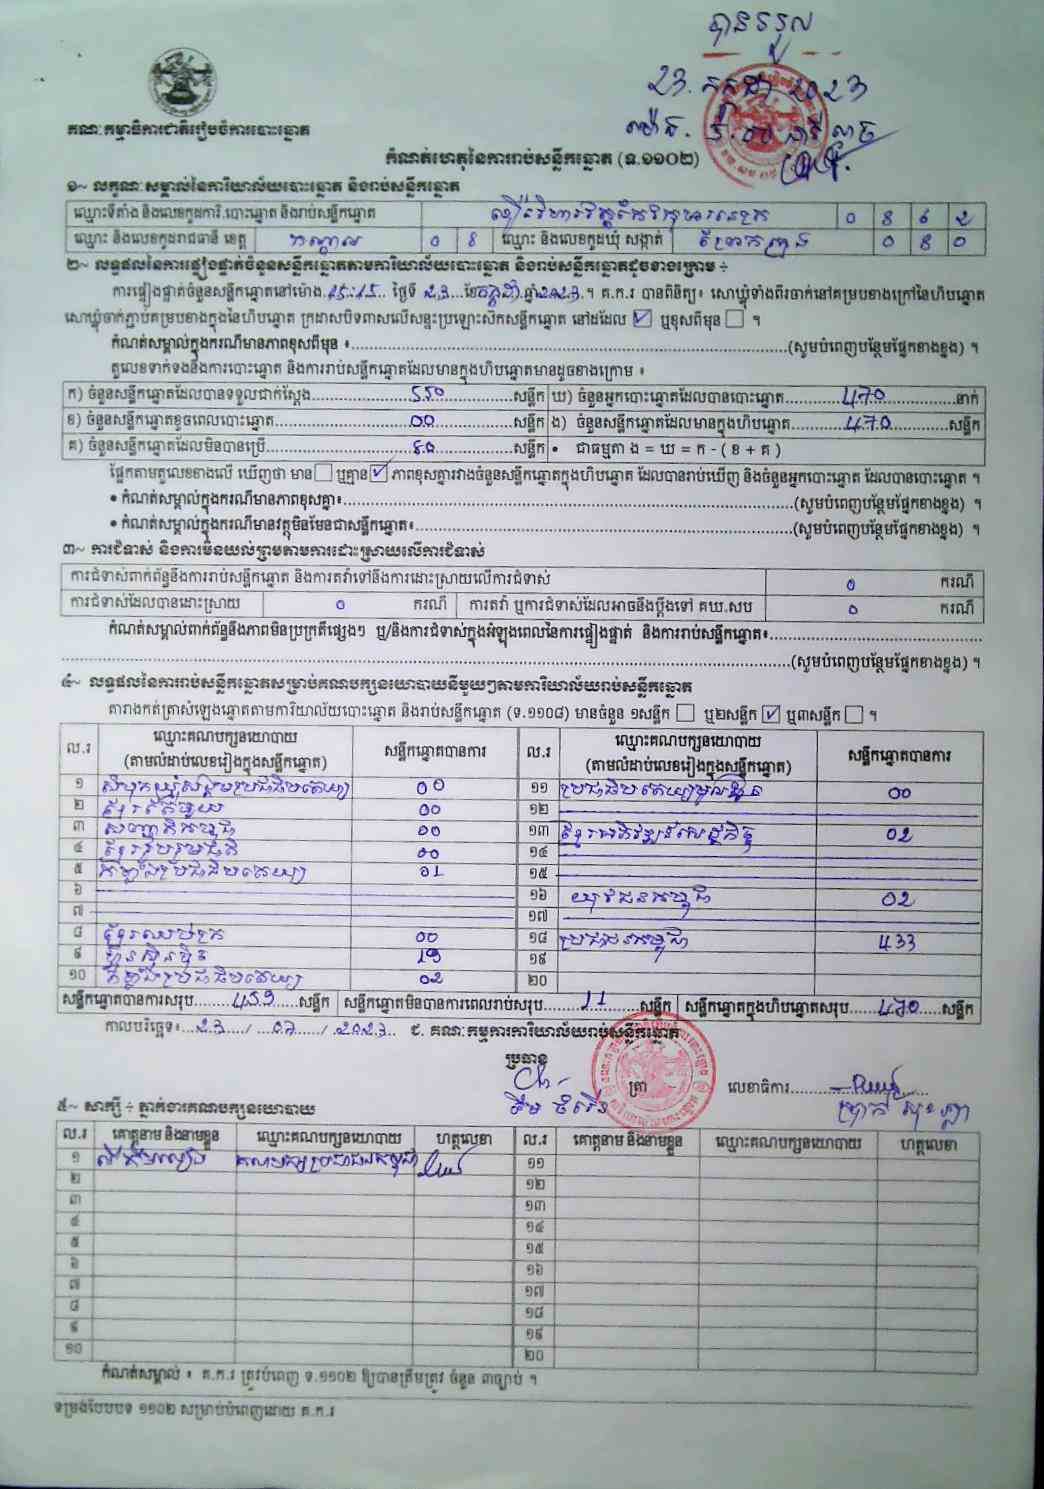 បានទទួល
23. កក្កដា 2023
ម៉ោង.
គណៈកម្មាធិការជាតិរៀបចំការបោះឆ្នោត
កំណត់ហេតុនៃការរាប់សន្លឹកឆ្នោត (ទ.១១០២)
១~ លក្ខណៈសម្គាល់នៃការិយាល័យបោះឆ្នោត និងរាប់សន្លឹកឆ្នោត
ឈ្មោះទីតាំង និងលេខកូដការិ.បោះឆ្នោត និងរាប់សន្លឹកឆ្នោត
ឈ្មោះ និងលេខកូដរាជធានី ខេត្ត កណ្តាល 0 8 ឈ្មោះ និងលេខកូដឃុំ សង្កាត់
២~ លទ្ធផលនៃការផ្ទៀងផ្ទាត់ចំនួនសន្លឹកឆ្នោតតាមការិយាល័យបោះឆ្នោត និងរាប់សន្លឹកឆ្នោតដូចខាងក្រោម ÷
ការផ្ទៀងផ្ទាត់ចំនួនសន្លឹកឆ្នោតនៅម៉ោង 15:15 ថ្ងៃទី 23 ខែ កក្កដា ឆ្នាំ 2023 ។ គ.ក.រ បានពិនិត្យ៖ សោឃ្លុំទាំងពីរចាក់នៅគម្របខាងក្រៅនៃហិបឆ្នោត
សោឃ្លុំចាក់ភ្ជាប់គម្របខាងក្នុងនៃហិបឆ្នោត ក្រដាសបិទពាសលើសន្ទះប្រឡោះសិកសន្លឹកឆ្នោត នៅដដែល ☑ ឬខុសពីមុន ☐ ។
កំណត់សម្គាល់ក្នុងករណីមានភាពខុសពីមុន ៖ (សូមបំពេញបន្ថែមផ្នែកខាងខ្នង) ។
តួលេខទាក់ទងនឹងការបោះឆ្នោត និងការរាប់សន្លឹកឆ្នោតដែលមានក្នុងហិបឆ្នោតមានដូចខាងក្រោម ៖
ក) ចំនួនសន្លឹកឆ្នោតដែលបានទទួលជាក់ស្តែង 550 សន្លឹក ឃ) ចំនួនអ្នកបោះឆ្នោតដែលបានបោះឆ្នោត 470 នាក់
ខ) ចំនួនសន្លឹកឆ្នោតខូចពេលបោះឆ្នោត 00 សន្លឹក ង) ចំនួនសន្លឹកឆ្នោតដែលមានក្នុងហិបឆ្នោត 470 សន្លឹក
គ) ចំនួនសន្លឹកឆ្នោតដែលមិនបានប្រើ 80 សន្លឹក • ជាធម្មតា ង = ឃ = ក - ( ខ + គ )
ផ្អែកតាមតួលេខខាងលើ ឃើញថា មាន ☐ ឬគ្មាន ☑ ភាពខុសគ្នារវាងចំនួនសន្លឹកឆ្នោតក្នុងហិបឆ្នោត ដែលបានរាប់ឃើញ និងចំនួនអ្នកបោះឆ្នោត ដែលបានបោះឆ្នោត ។
• កំណត់សម្គាល់ក្នុងករណីមានភាពខុសគ្នា៖ (សូមបំពេញបន្ថែមផ្នែកខាងខ្នង) ។
• កំណត់សម្គាល់ក្នុងករណីមានវត្ថុមិនមែនជាសន្លឹកឆ្នោត៖ (សូមបំពេញបន្ថែមផ្នែកខាងខ្នង) ។
៣~ ការជំទាស់ និងការមិនយល់ព្រមតាមការដោះស្រាយលើការជំទាស់
ការជំទាស់ពាក់ព័ន្ធនឹងការរាប់សន្លឹកឆ្នោត និងការតវ៉ាទៅនឹងការដោះស្រាយលើការជំទាស់ 0 ករណី
ការជំទាស់ដែលបានដោះស្រាយ 0 ករណី ការតវ៉ា ឬការជំទាស់ដែលអាចនឹងប្តឹងទៅ គឃ.សប 0 ករណី
កំណត់សម្គាល់ពាក់ព័ន្ធនឹងភាពមិនប្រក្រតីផ្សេងៗ ឬ/និងការជំទាស់ក្នុងអំឡុងពេលនៃការផ្ទៀងផ្ទាត់ និងការរាប់សន្លឹកឆ្នោត៖
(សូមបំពេញបន្ថែមផ្នែកខាងខ្នង) ។
៤~ លទ្ធផលនៃការរាប់សន្លឹកឆ្នោតសម្រាប់គណបក្សនយោបាយនីមួយៗតាមការិយាល័យរាប់សន្លឹកឆ្នោត
តារាងកត់ត្រាសំឡេងឆ្នោតតាមការិយាល័យបោះឆ្នោត និងរាប់សន្លឹកឆ្នោត (ទ.១១០៨) មានចំនួន ១សន្លឹក ☐ ឬ២សន្លឹក ☑ ឬ៣សន្លឹក ☐ ។
ល.រ ឈ្មោះគណបក្សនយោបាយ (តាមលំដាប់លេខរៀងក្នុងសន្លឹកឆ្នោត) សន្លឹកឆ្នោតបានការ ល.រ ឈ្មោះគណបក្សនយោបាយ (តាមលំដាប់លេខរៀងក្នុងសន្លឹកឆ្នោត) សន្លឹកឆ្នោតបានការ
១ សំបុកឃ្មុំសង្គមប្រជាធិបតេយ្យ 00 ១១ ប្រជាធិបតេយ្យមូលដ្ឋាន 00
២ ខ្មែរតែមួយ 00 ១២
៣ សញ្ជាតិកម្ពុជា 00 ១៣ ខ្មែរអភិវឌ្ឍន៍សេដ្ឋកិច្ច 02
៤ ខ្មែររួបរួមជាតិ 00 ១៤
៥ កម្លាំងប្រជាធិបតេយ្យ 01 ១៥
៦ ១៦ យុវជនកម្ពុជា 02
៧ ១៧
៨ ខ្មែរឈប់ក្រ 00 ១៨ ប្រជាជនកម្ពុជា 433
៩ ហ៊្វុនស៊ិនប៉ិច 19 ១៩
១០ 02 ២០
សន្លឹកឆ្នោតបានការសរុប 459 សន្លឹក សន្លឹកឆ្នោតមិនបានការពេលរាប់សរុប 11 សន្លឹក សន្លឹកឆ្នោតក្នុងហិបឆ្នោតសរុប 470 សន្លឹក
កាលបរិច្ឆេទ៖ 23 / 07 / 2023 ជ. គណៈកម្មការការិយាល័យរាប់សន្លឹកឆ្នោត
ប្រធាន
ត្រា
លេខាធិការ
៥~ សាក្សី ÷ ភ្នាក់ងារគណបក្សនយោបាយ
ល.រ គោត្តនាម និងនាមខ្លួន ឈ្មោះគណបក្សនយោបាយ ហត្ថលេខា ល.រ គោត្តនាម និងនាមខ្លួន ឈ្មោះគណបក្សនយោបាយ ហត្ថលេខា
១ គណបក្សប្រជាជនកម្ពុជា ១១
២ ១២
៣ ១៣
៤ ១៤
៥ ១៥
៦ ១៦
៧ ១៧
៨ ១៨
៩ ១៩
១០ ២០
កំណត់សម្គាល់ ៖ គ.ក.រ ត្រូវបំពេញ ទ.១១០២ ឱ្យបានត្រឹមត្រូវ ចំនួន ៣ច្បាប់ ។
ទម្រង់បែបបទ ១១០២ សម្រាប់បំពេញដោយ គ.ក.រ